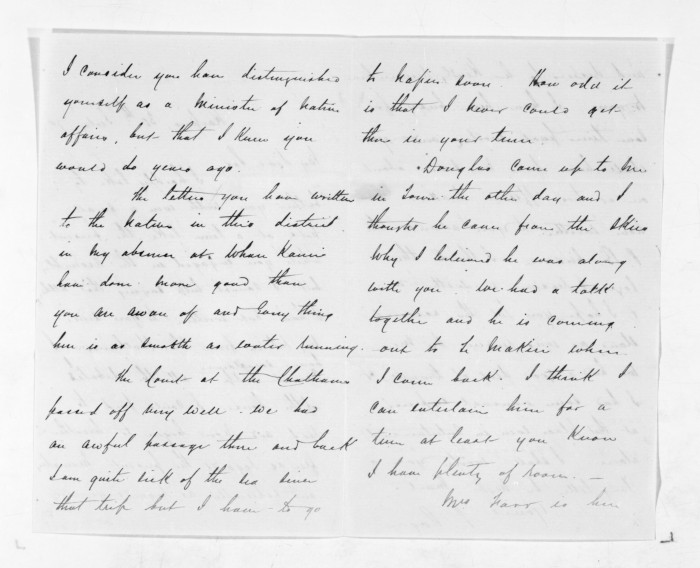 I consider you have distinguished
yourself as a Minister of Native
affairs, but that I knew you
would do years ago.
The letters you have written
to the Natives in this district
in my absence at Whare Kauri
have done more good than
you are aware of and Every thing
here is as smooth as water running.
The Court at the Chathams
passed off very well. We had
an awful passage there and back
I am quite sick of the sea since
that trip but I have to go
to Napier soon. How odd it
is that I never could get
there in your time.
Douglas came up to me
in Town the other day and I
thought he came from the skies
Why I believed he was along
with you. We had a talk
together and he is coming
out to Te Makiri when
I come back. I think I
can entertain him for a
time at least you Know
I have plenty of room. —
Mrs is here